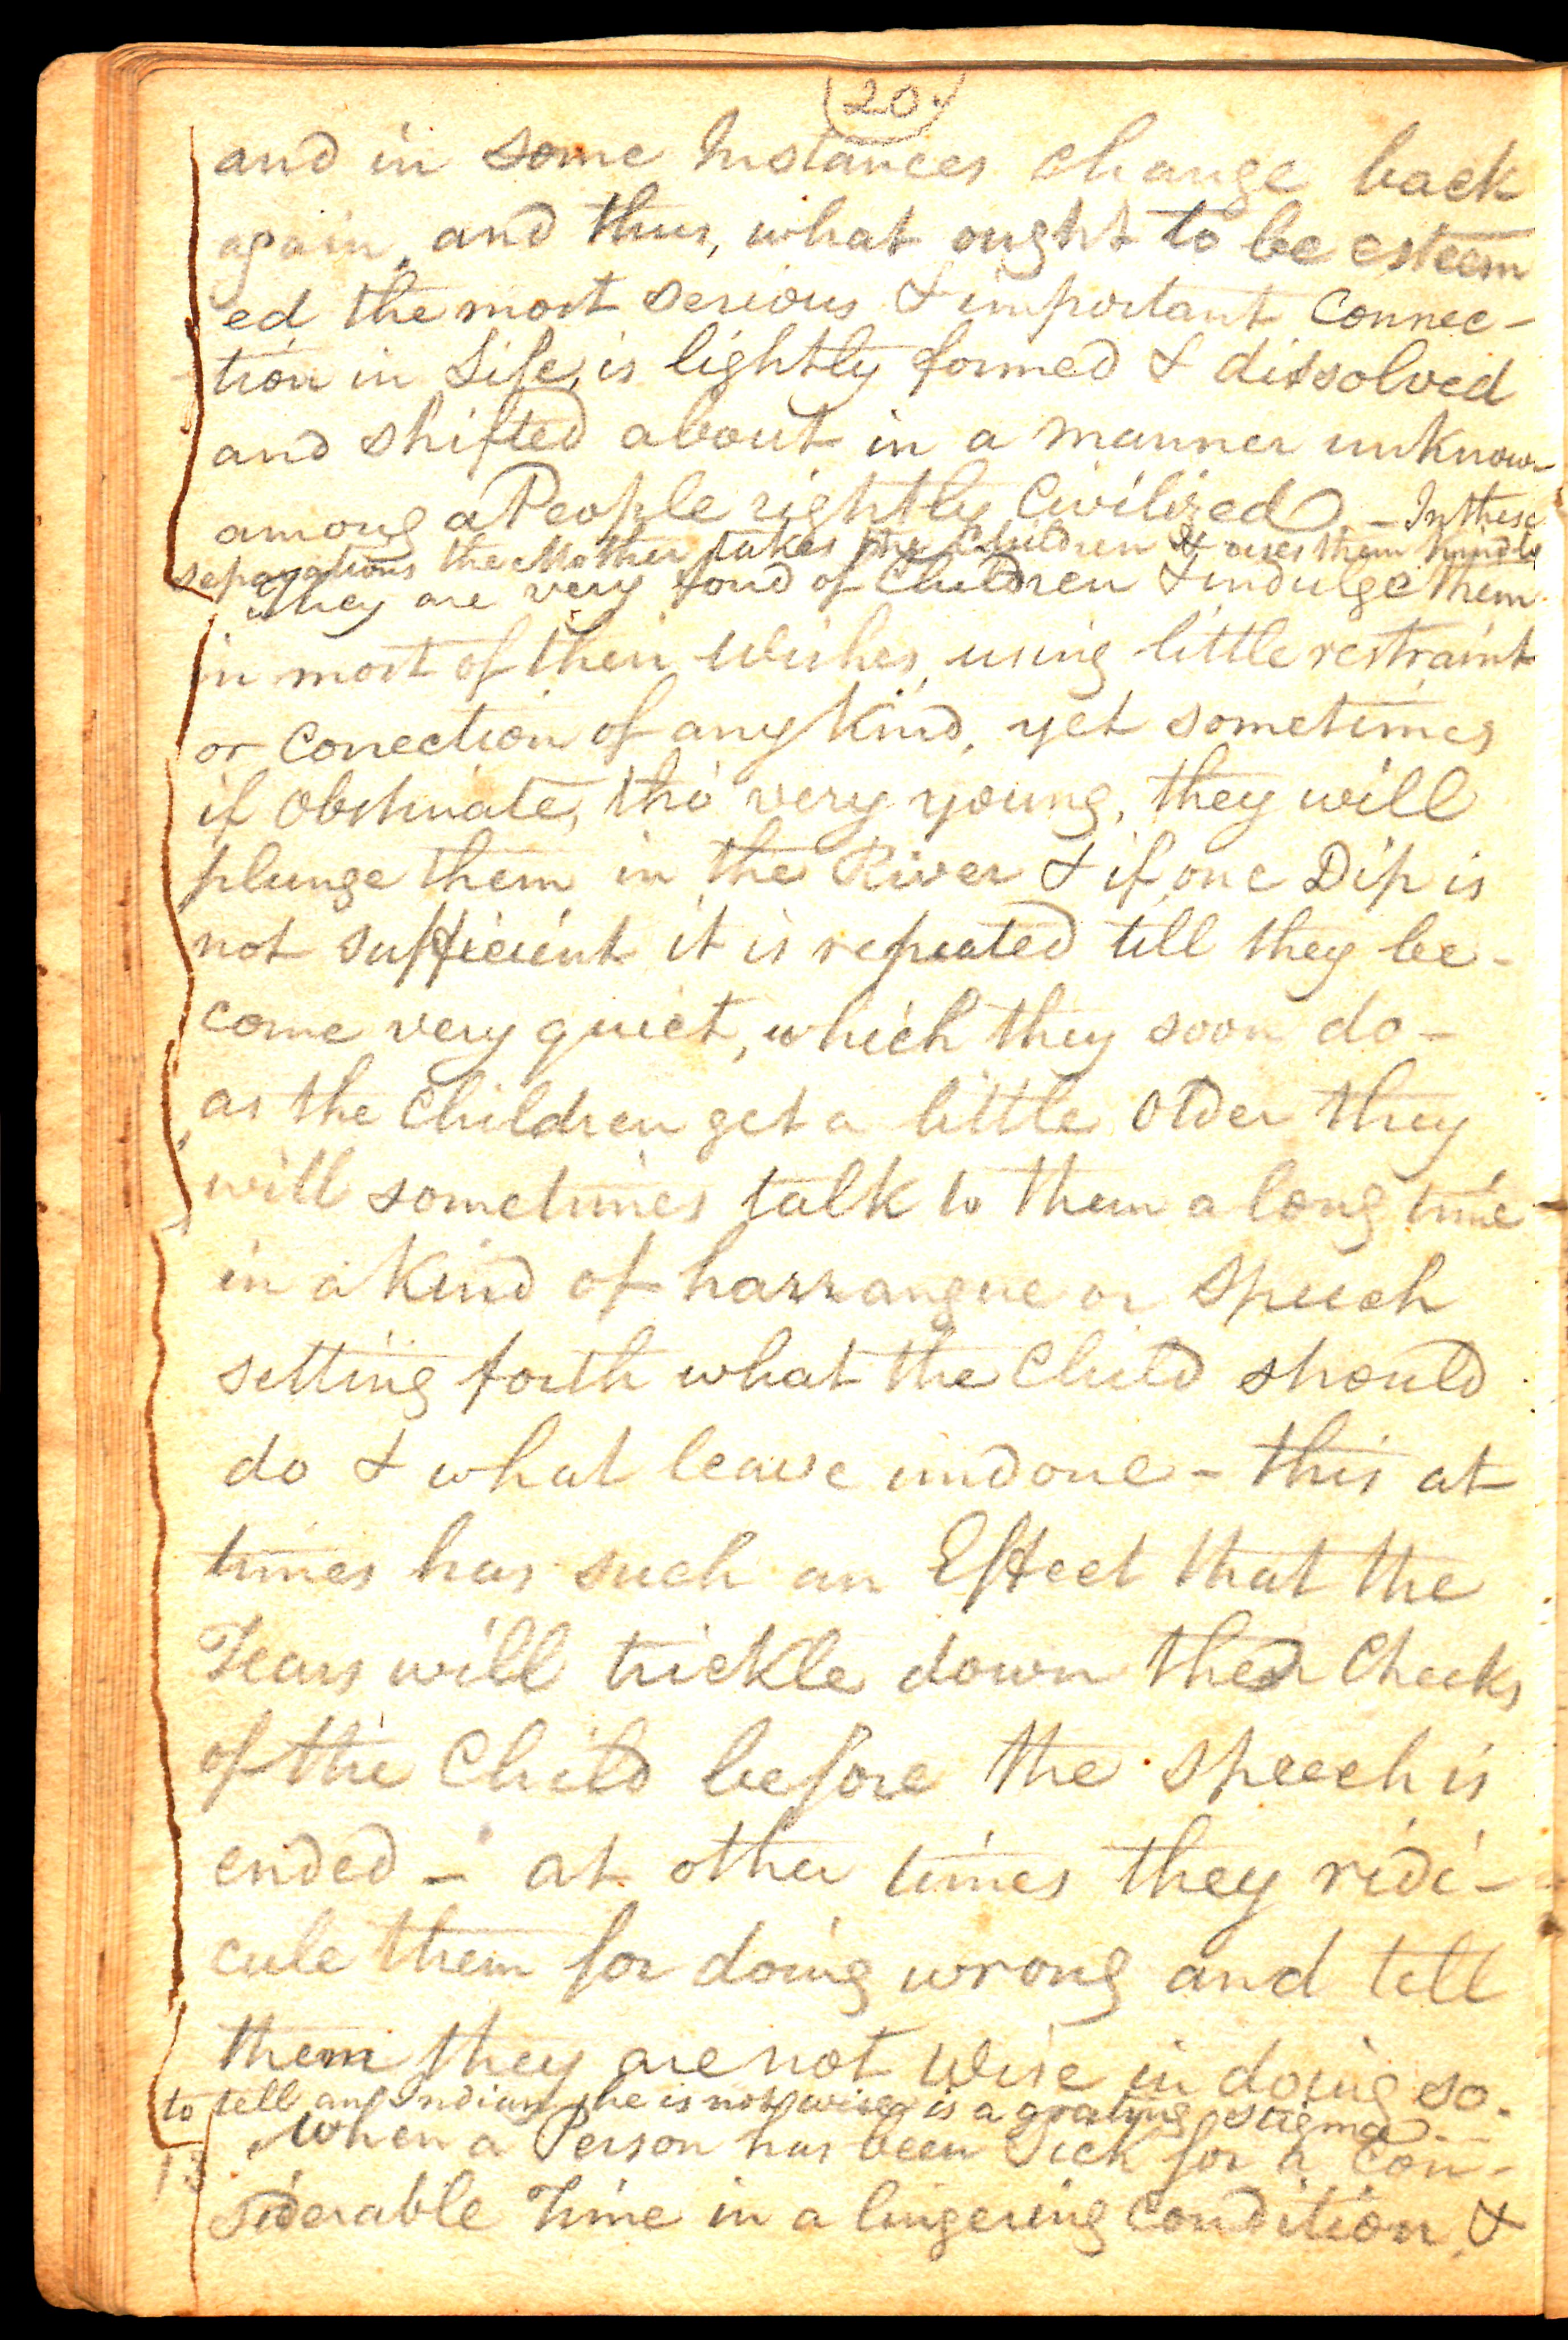 20.
and in some Instances change back
again, and thus, what ought to be esteem
ed the most serious & important Connec-
tion in Life, is lightly formed & dissolved
and shifted about in a manner unknown
among a People rightly Civilized. - In these
separations the Mother takes the Children & uses them kindly
They are very fond of Children & indulge them
in most of their Wishes, using little restraint
or Correction of any Kind, yet sometimes
if Obstinate, tho' very young, they will
plunge them in the River & if one Dip is
not sufficient it is repeated till they be-
come very quiet, which they soon do -
as the Children get a little Older they
will sometimes talk to them a long time
in a Kind of harrangue or Speech
setting forth what the Child should
do & what leave undone - this at
times has such an Effect that the
Tears will trickle down the Cheeks
of the Child before the Speech is
ended - at other times they ridi-
cule them for doing wrong and tell
them they are not Wise in doing so.
to tell an Indian he is not wise is a grating stigma -
When a Person has been Sick for a Con-
siderable Time in a lingering Condition, &